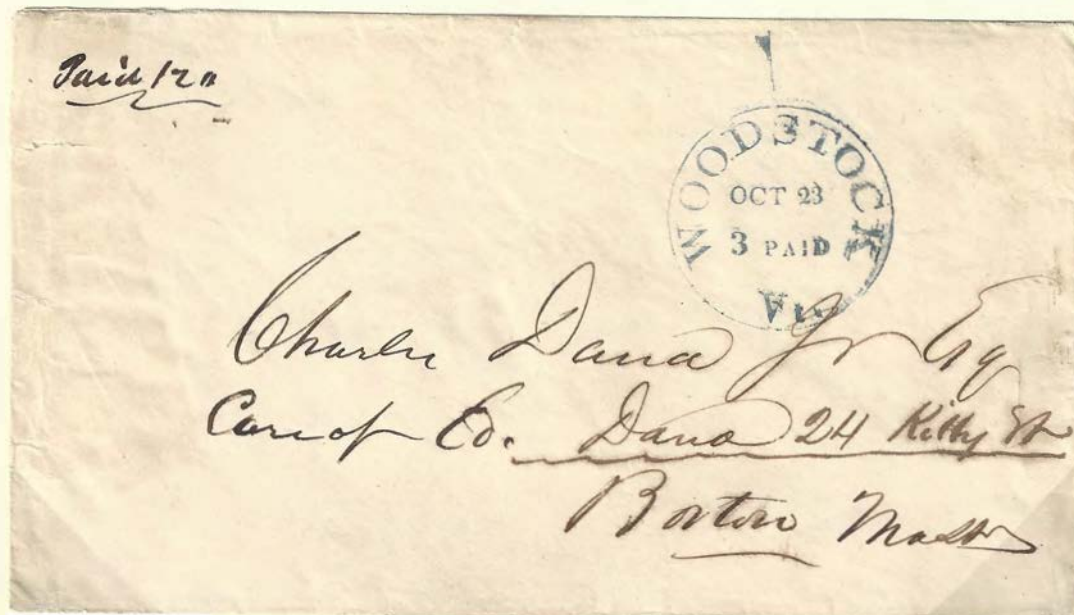 Paid
WOODSTOCK
OCT 23
3 PAID
Vt.
Charles Dana Jr Esq
Care of Ed. Dana 24 Kilby St
Boston Mass